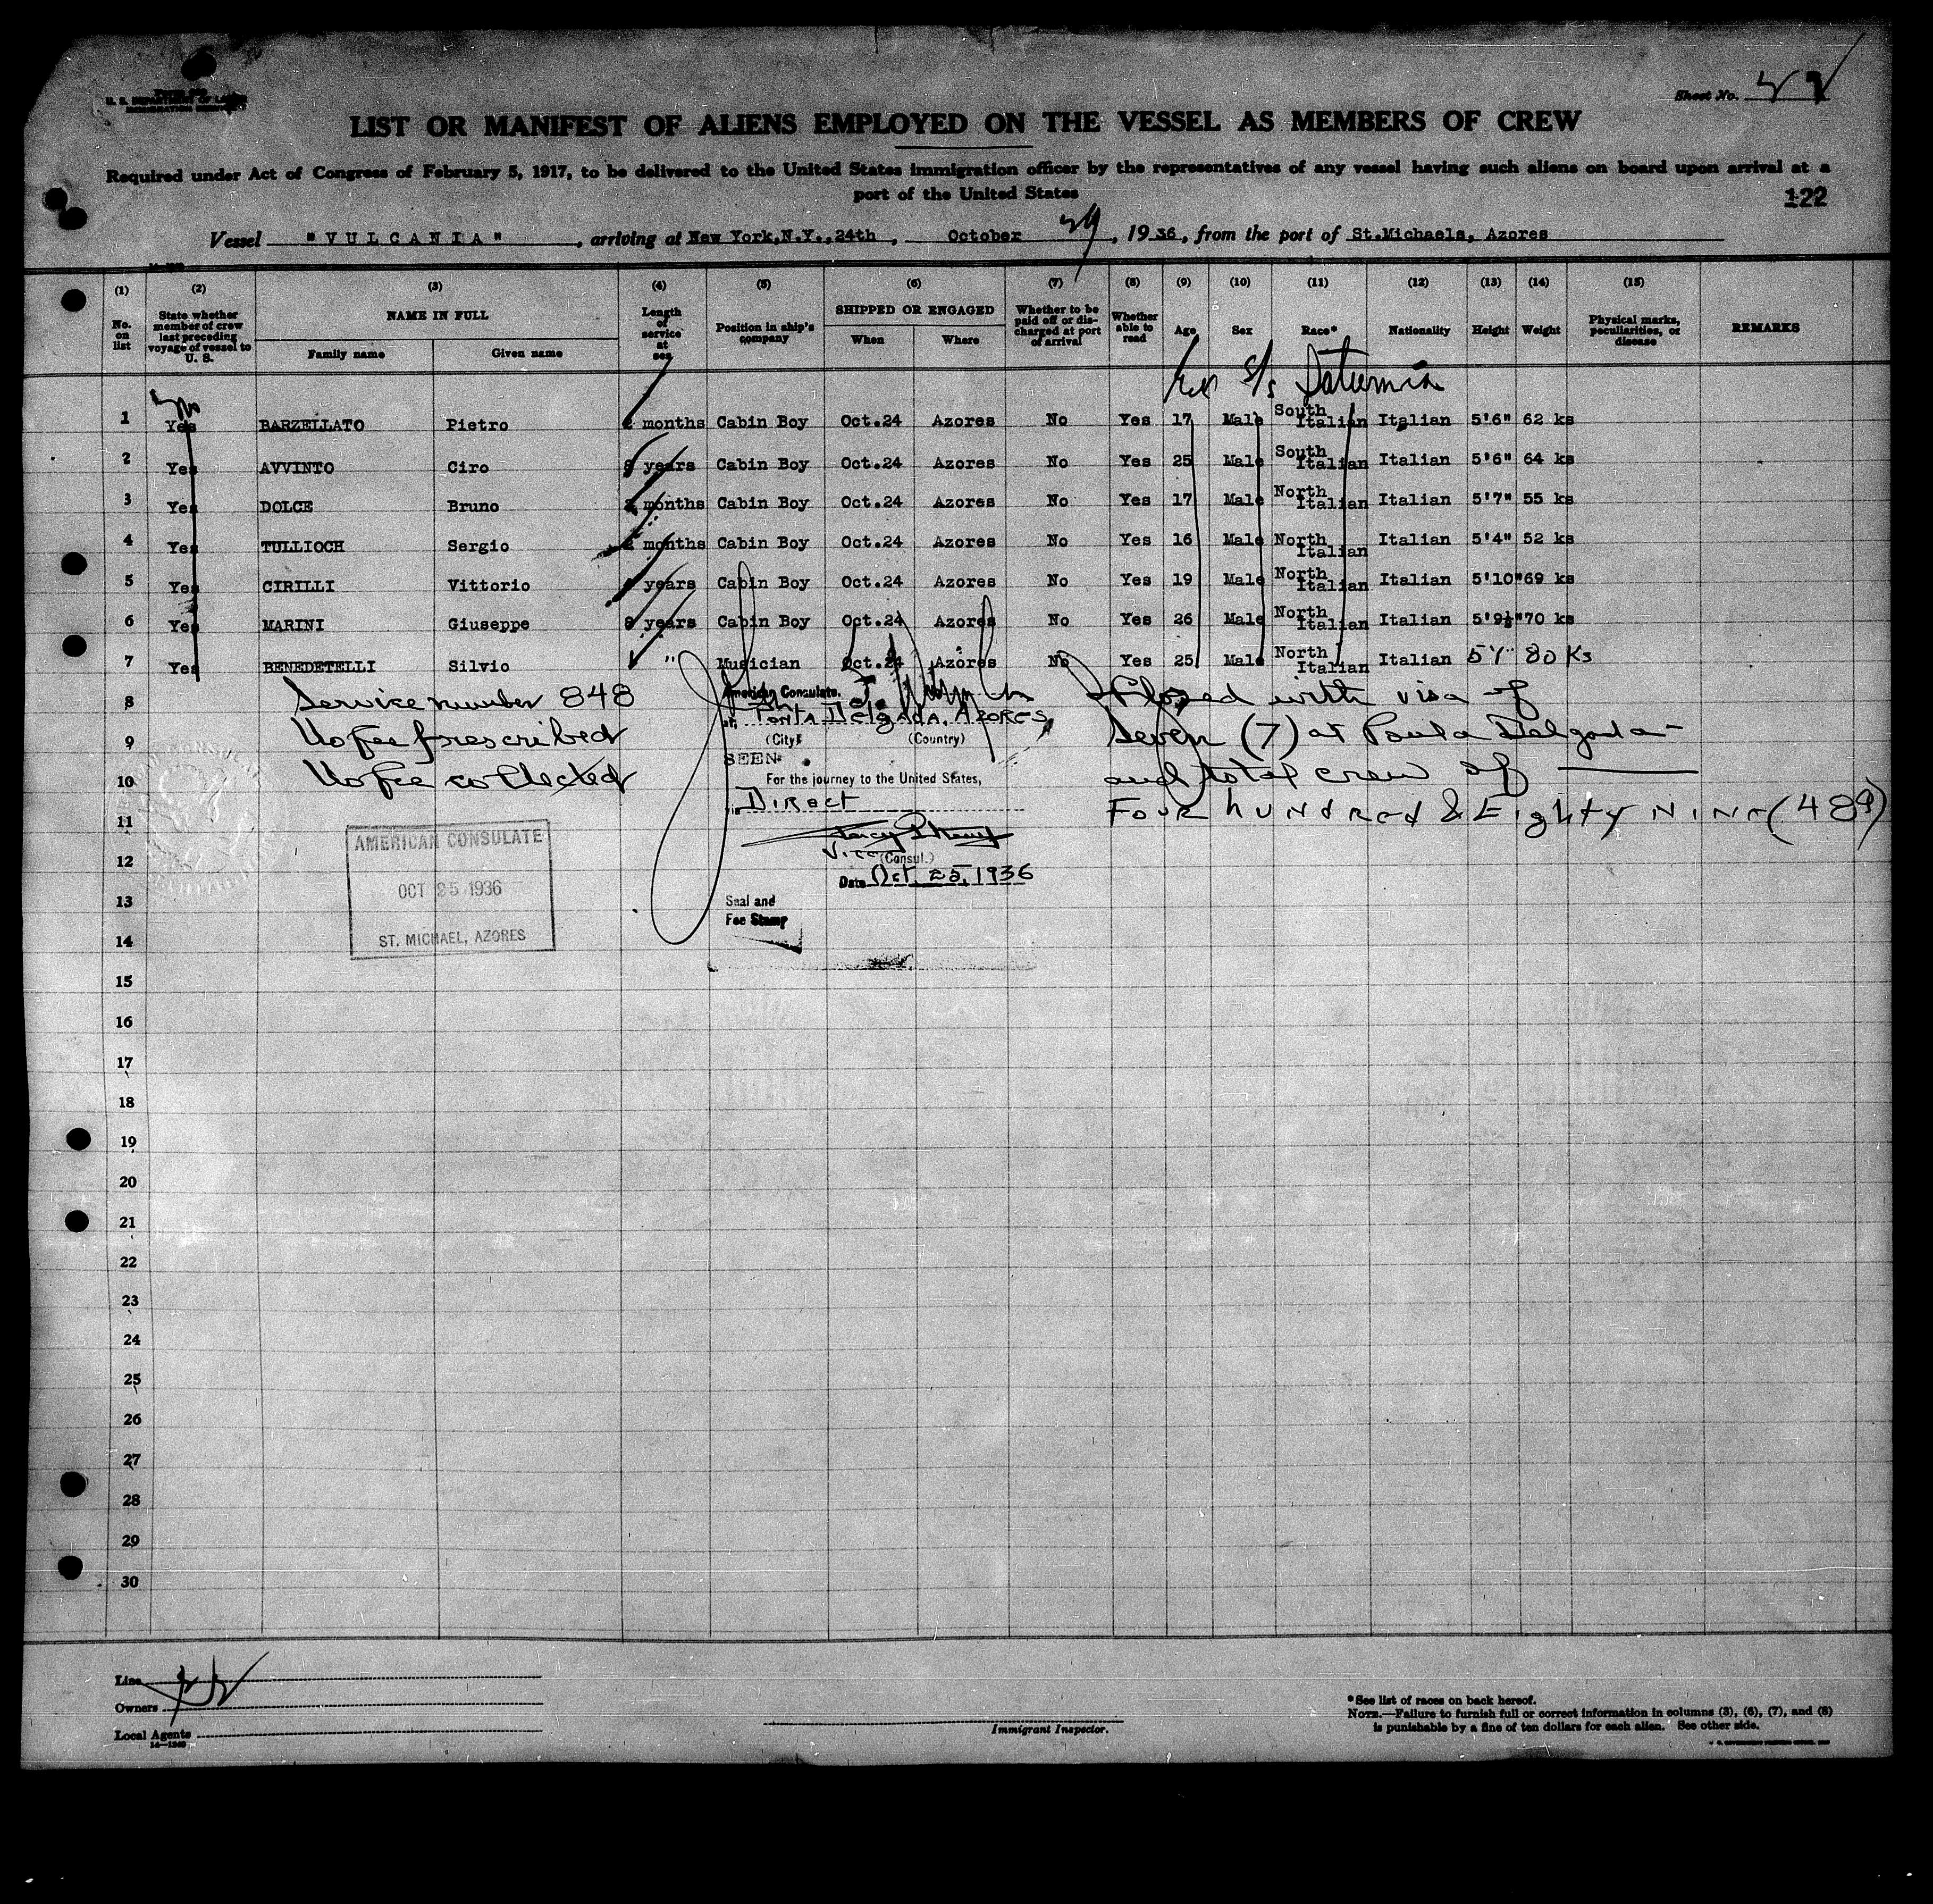 U. S. DEPARTMENT OF LABOR
Sheet No.
LIST OR MANIFEST OF ALIENS EMPLOYED ON THE VESSEL AS MEMBERS OF CREW
Required under Act of Congress of February 5, 1917, to be delivered to the United States immigration officer by the representatives of any vessel having such aliens on board upon arrival at a
port of the United States
122
Vessel "VULCANIA", arriving at New York,N.Y.,24th, October 29, 1936, from the port of St.Michaels, Azores
(1) (2) (3) (4) (5) (6) (7) (8) (9) (10) (11) (12) (13) (14) (15)
No. on list State whether member of crew last preceding voyage of vessel to U. S. NAME IN FULL Family name Given name Length of service at sea Position in ship's company SHIPPED OR ENGAGED When Where Whether to be paid off or discharged at port of arrival Whether able to read Age Sex Race* Nationality Height Weight Physical marks, peculiarities, or disease REMARKS
s/s Saturnia
No
1 Yes BARZELLATO Pietro months Cabin Boy Oct.24 Azores No Yes 17 Male South Italian Italian 5'6" 62 ks
2 Yes AVVINTO Ciro years Cabin Boy Oct.24 Azores No Yes 25 Male South Italian Italian 5'6" 64 ks
3 Yes DOLCE Bruno months Cabin Boy Oct.24 Azores No Yes 17 Male North Italian Italian 5'7" 55 ks
4 Yes TULLIOCH Sergio months Cabin Boy Oct.24 Azores No Yes 16 Male North Italian Italian 5'4" 52 ks
5 Yes CIRILLI Vittorio years Cabin Boy Oct.24 Azores No Yes 19 Male North Italian Italian 5'10" 69 ks
6 Yes MARINI Giuseppe years Cabin Boy Oct.24 Azores No Yes 26 Male North Italian Italian 5'9½" 70 ks
7 Yes BENEDETELLI Silvio " Musician Oct.24 Azores No Yes 25 Male North Italian Italian 5'7" 80 Ks
8 Service number 848
9 No fee prescribed
10 No fee collected
11
12
13
14
15
16
17
18
19
20
21
22
23
24
25
26
27
28
29
30
AMERICAN CONSULATE
OCT 25 1936
ST. MICHAEL, AZORES
American Consulate,
at Ponta Delgada, Azores
(City) (Country)
SEEN
For the journey to the United States,
Direct
Vice (Consul.)
Date Oct. 25, 1936
Seal and
Fee Stamp
Closed with visa of
Seven (7) at Ponta Delgada
and total crew of
Four hundred & Eighty Nine (489)
Line
Owners
Local Agents
Immigrant Inspector.
*See list of races on back hereof.
NOTE.—Failure to furnish full or correct information in columns (3), (6), (7), and (8)
is punishable by a fine of ten dollars for each alien. See other side.